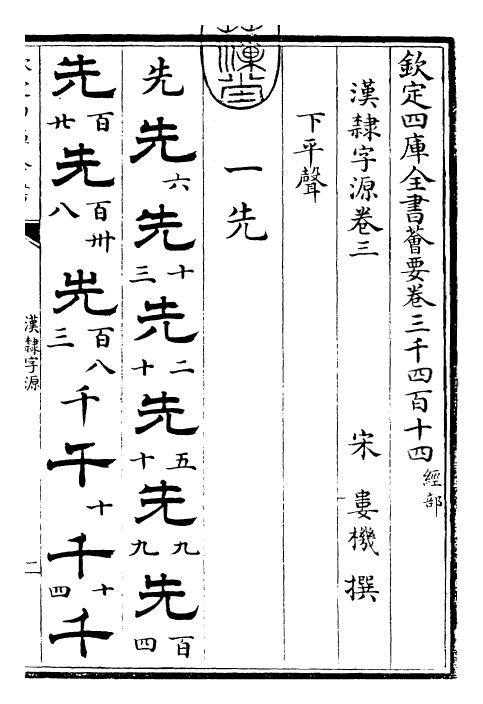 欽定四庫全書薈要卷三千四百十四 經部
漢隸字源卷三 宋 婁機 撰
下平聲
一先
先 先六 先十三 先二十 先五十 先九九 先百四
先百廿 先百卅八 先百八三 千 千十 千十四 千
漢隸字源
二